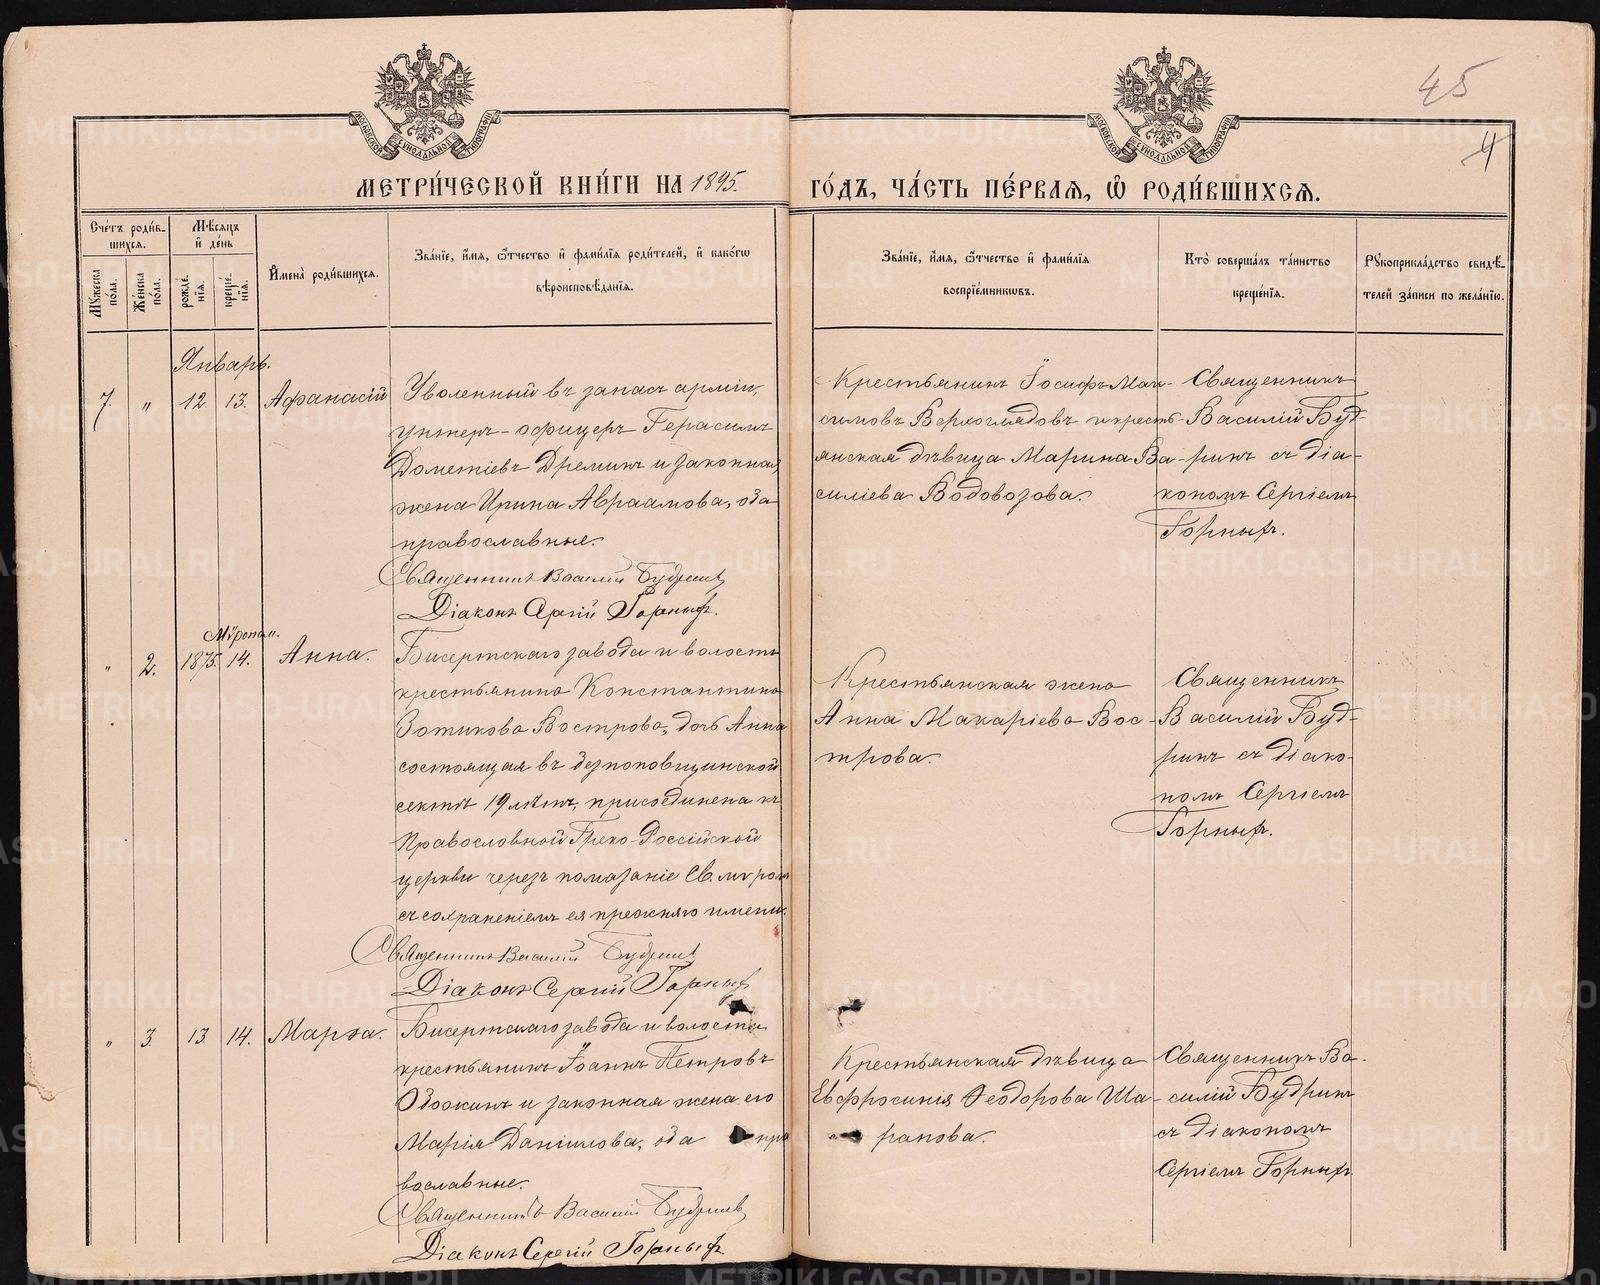 45
4
МОСКОВСКОЙ СѴНОДАЛЬНОЙ ТИПОГРАФІИ
МОСКОВСКОЙ СѴНОДАЛЬНОЙ ТИПОГРАФІИ
МЕТРИ́ЧЕСКОЙ КНИ́ГИ НА 1895. ГО́ДЪ, ЧА́СТЬ ПЕ́РВАЯ, Ѽ РОДИ́ВШИХСЯ.
Сче́тъ роди́в-
шихся.
Мѣ́сяцъ
и҆ де́нь
Мꙋ́жеска
по́ла.
Же́нска
по́ла.
рожде́-
нія.
креще́-
нія.
И҆мена̀ роди́вшихся.
Зва́ніе, и҆́мя, ѻ҆́тчество и҆ фами́лія роди́телей, и҆ како́гѡ
вѣроисповѣ́данія.
Зва́ніе, и҆́мя, ѻ҆́тчество и҆ фами́лія
воспріе́мникѡвъ.
Кто̀ соверша́лъ та́инство
креще́нія.
Рꙋкоприкла́дство свидѣ́-
телей за́писи по жела́нію.
Январь.
7. " 12. 13. Афанасій
Уволенный въ запасъ арміи,
унтеръ-офицеръ Герасимъ
Дометіевъ Дреминъ и законная
жена Ирина Авраамова, оба
православные.
Священникъ Василій Будринъ
Діаконъ Сергій Горныхъ.
Крестьянинъ Іосифъ Мак-
симовъ Верхоглядовъ и кресть-
янская дѣвица Марина Ва-
силіева Водовозова.
Священникъ
Василій Буд-
ринъ съ діа-
кономъ Сергіемъ
Горныхъ.
Мѵропом.
" 2. 1875. 14. Анна.
Бисертскаго завода и волости
крестьянина Константина
Зотикова Вострова, дочь Анна
состоящая въ безпоповщинской
сектѣ 19 лѣтъ, присоединена къ
Православной Греко-Россійской
церкви черезъ помазаніе Св. мѵромъ
съ сохраненіемъ ея прежняго имени.
Священникъ Василій Будринъ
Діаконъ Сергій Горныхъ
Крестьянская жена
Анна Макаріева Вос-
трова.
Священникъ
Василій Буд-
ринъ съ діако-
номъ Сергіемъ
Горныхъ.
" 3. 13 14. Марѳа.
Бисертскаго завода и волости
крестьянинъ Іоаннъ Петровъ
Озожкинъ и законная жена его
Марія Даніилова, оба пра
вославные.
Священникъ Василій Будринъ
Діаконъ Сергій Горныхъ
Крестьянская дѣвица
Евфросинія Ѳеодорова Ша-
рапова.
Священникъ Ва-
силій Будринъ
съ діакономъ
Сергіемъ Горныхъ
METRIKI.GASO-URAL.RU